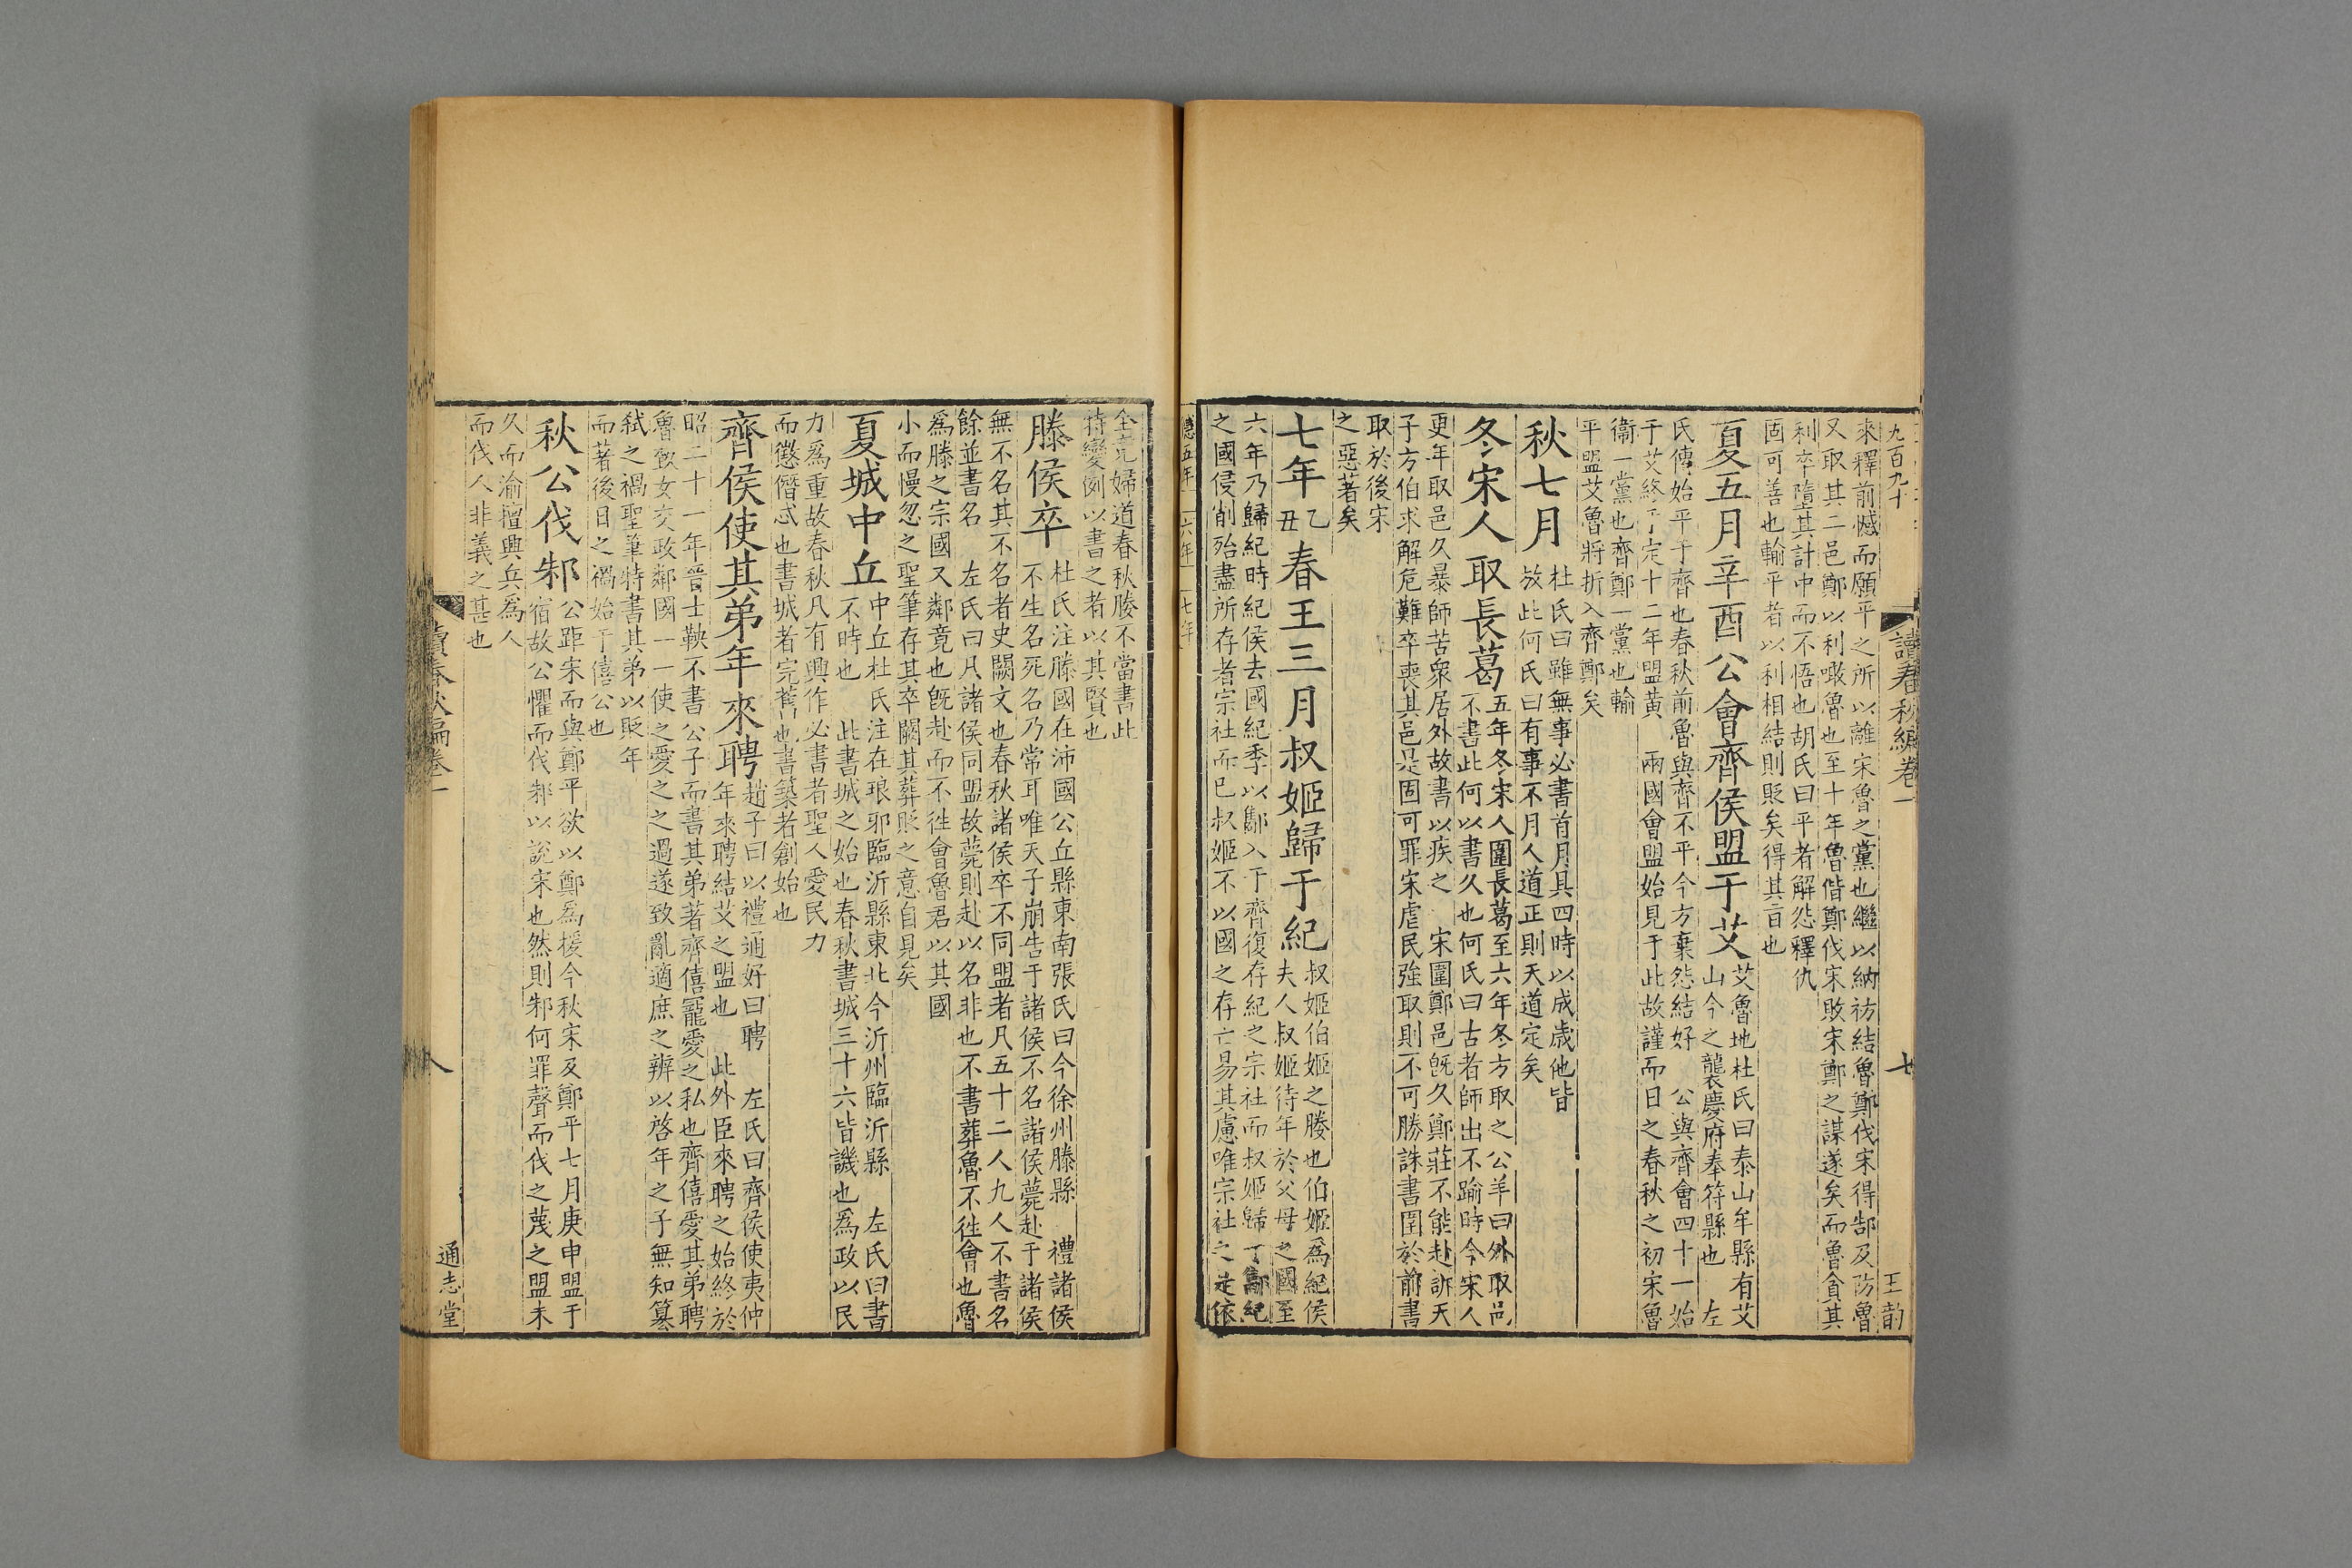 九百九十
讀春秋編卷一
七
王韵
來釋前憾而願平之所以離宋魯之黨也繼以納祊結魯鄭伐宋得郜及防魯
又取其二邑鄭以利噉魯也至十年魯偕鄭伐宋敗宋鄭之謀遂矣而魯貪其
利卒墮其計中而不悟也胡氏曰平者解怨釋仇
固可善也輸平者以利相結則貶矣得其旨也
夏五月辛酉公會齊侯盟于艾
艾魯地杜氏曰泰山牟縣有艾
山今之襲慶府奉符縣也 左
氏傳始平于齊也春秋前魯與齊不平今方棄怨結好 公與齊會四十一始
于艾終于定十二年盟黃 兩國會盟始見于此故謹而日之春秋之初宋魯
衞一黨也齊鄭一黨也輸
平盟艾魯將折入齊鄭矣
秋七月
杜氏曰雖無事必書首月具四時以成歲他皆
放此何氏曰有事不月人道正則天道定矣
冬宋人取長葛
五年冬宋人圍長葛至六年冬方取之公羊曰外取邑
不書此何以書久也何氏曰古者師出不踰時今宋人
更年取邑久暴師苦衆居外故書以疾之 宋圍鄭邑旣久鄭莊不能赴訴天
子方伯求解危難卒喪其邑是固可罪宋虐民強取則不可勝誅書圍於前書
取於後宋
之惡著矣
七年
乙
丑
春王三月叔姬歸于紀
叔姬伯姬之媵也伯姬爲紀侯
夫人叔姬待年於父母之國至
六年乃歸紀時紀侯去國紀季以酅入于齊復存紀之宗社而叔姬歸于酅紀
之國侵削殆盡所存者宗社而已叔姬不以國之存亡易其慮唯宗社之是依
隱五年 六年 七年
全 婦道春秋媵不當書此
特變例以書之者以其賢也
滕侯卒
杜氏注滕國在沛國公丘縣東南張氏曰今徐州滕縣 禮諸侯
不生名死名乃常耳唯天子崩告于諸侯不名諸侯薨赴于諸侯
無不名其不名者史闕文也春秋諸侯卒不同盟者凡五十二人九人不書名
餘並書名 左氏曰凡諸侯同盟故薨則赴以名非也不書葬魯不徃會也魯
爲滕之宗國又鄰竟也旣赴而不徃會魯君以其國
小而慢忽之聖筆存其卒闕其葬貶之意自見矣
夏城中丘
中丘杜氏注在琅邪臨沂縣東北今沂州臨沂縣 左氏曰書
不時也 此書城之始也春秋書城三十六皆譏也爲政以民
力爲重故春秋凡有興作必書者聖人愛民力
而懲僭忒也書城者完舊也書築者創始也
齊侯使其弟年來聘
趙子曰以禮通好曰聘 左氏曰齊侯使夷仲
年來聘結艾之盟也 此外臣來聘之始終於
昭二十一年晉士鞅不書公子而書其弟著齊僖寵愛之私也齊僖愛其弟聘
魯致女交政鄰國一一使之愛之之過遂致亂適庶之辨以啓年之子無知簒
弒之禍聖筆特書其弟以貶年
而著後日之禍始于僖公也
秋公伐邾
公距宋而與鄭平欲以鄭爲援今秋宋及鄭平七月庚申盟于
宿故公懼而伐邾以說宋也然則邾何罪聲而伐之蔑之盟未
久而渝擅興兵爲人
而伐人非義之甚也
讀春秋編卷一
八
通志堂